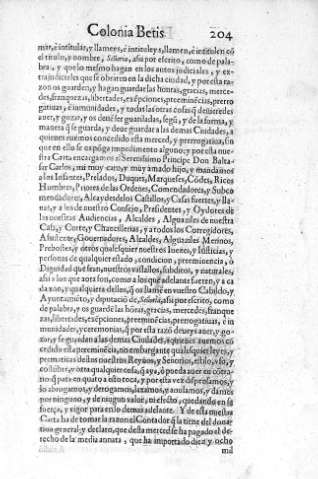 Colonia Betis. 204
mir, è intitular, y llameys, è intituleys, llamen, è intitulen cõ
el titulo, y nombre, Señoria, assi por escrito, como de pala-
bra, y que lo mesmo hagan en los autos judiciales, y ex-
trajudiciales que se obraren en la dicha ciudad, y por esta ra
zon os guarden, y hagan guardar las honras, gracias, merce-
des, franquezas, libertades, exẽpciones, preeminẽcias, prerro
gatiuas, è inmunidades, y todas las otras cosas q̃ deuieredes
auer, y gozar, y os deuẽ ser guardadas, segũ, y de la forma, y
manera q̃ se guarda, y deue guardar a las demas Ciudades, a
quienes auemos concedido esta merced, y prerrogatiua, sin
que en ello se os põga impedimento alguno; y por esta nue-
stra Carta encargamos al Serenissimo Principe Don Balta-
sar Carlos, mi muy caro, y muy amado hijo, y mandamos
a los Infantes, Prelados, Duques, Marqueses, Cõdes, Ricos
Hombres, Priores de las Ordenes, Comendadores, y Subco
mendadores, Alcaydes de los Castillos, y Casas fuertes, y lla-
nas, y a los de nuestro Consejo, Presidentes, y Oydores de
las nuestras Audiencias, Alcaldes, Alguaziles de nuestra
Casa, y Corte, y Chancillerias, y a todos los Corregidores,
Assistente, Governadores, Alcaldes, Alguaziles Merinos,
Prebostes, y otros qualesquier nuestros Iuezes, y Iusticias, y
personas de qualquier estado, condicion, preeminencia, ò
Dignidad que sean, nuestros vassallos, subditos, y naturales,
assi a los que aora son, como a los que adelante fueren, y a ca
da vno, y qualquier dellos, q̃ os llamẽ en vuestro Cabildo, y
Ayuntamiẽto, y diputació de, Señoria, assi por escrito, como
de palabra, y os guardẽ las hõras, gracias, mercedes, franque
zas, libertades, exẽpciones, preeminẽcias, prerrogatiuas, è in
munidades, y ceremonias, q̃ por esta razõ deueys auer, y go-
zar, y se guardan a las demas Ciudades, a quienes auemos cõ
cedido esta preeminẽcia, no embargante qualesquier leyes, y
prematicas destos nuestros Reynos, y Señorios, estilo, vso, y
costũbre, ù otra qualquier cosa, q̃ aya, ò pueda auer en cõtra-
rio, q̃ para en quato a esto toca, y por esta vez dispẽsamos, y
lo abrogamos, y derogamos, cassamos, y anulamos, y damos
por ninguno, y de ningun valor, ni efecto, quedando en su
fuerça, y vigor para en lo demas adelante. Y de esta nuestra
Carta ha de tomar la razon el Contador q̃ la tiene del donati
uo general: y declaro, que desta merced se ha pagado el de-
recho de la media annata, que ha importado diez y ocho
mil